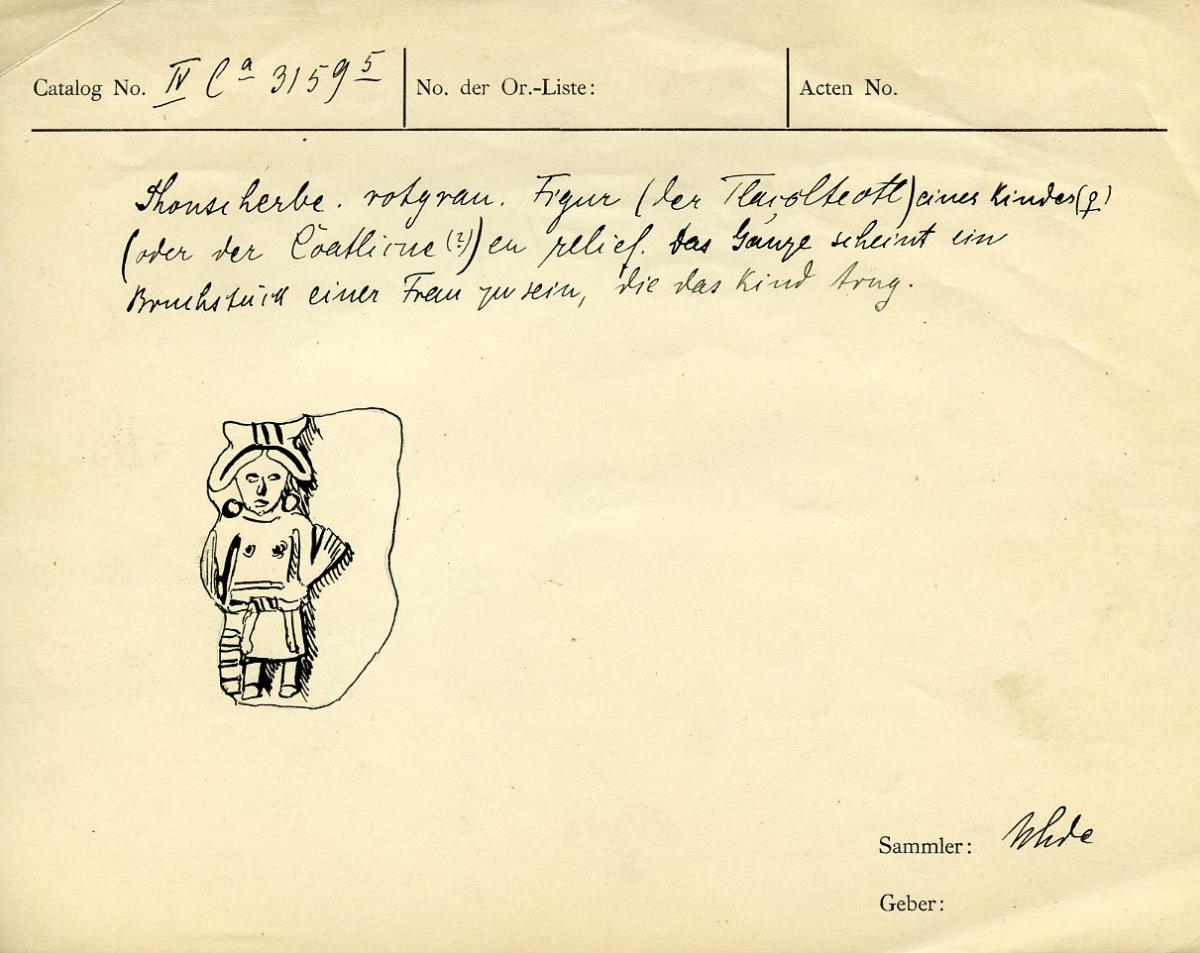 Catalog No. IV Ca 31595 No. der Or.-Liste: Acten No.
Thonscherbe. rotgrau. Figur (der Tlaçolteotl) eines Kindes (♀)
(oder der Cōatlicue (?)) en relief. Das Ganze scheint ein
Bruchstück einer Frau zu sein, die das Kind trug.
Sammler: Uhde
Geber: